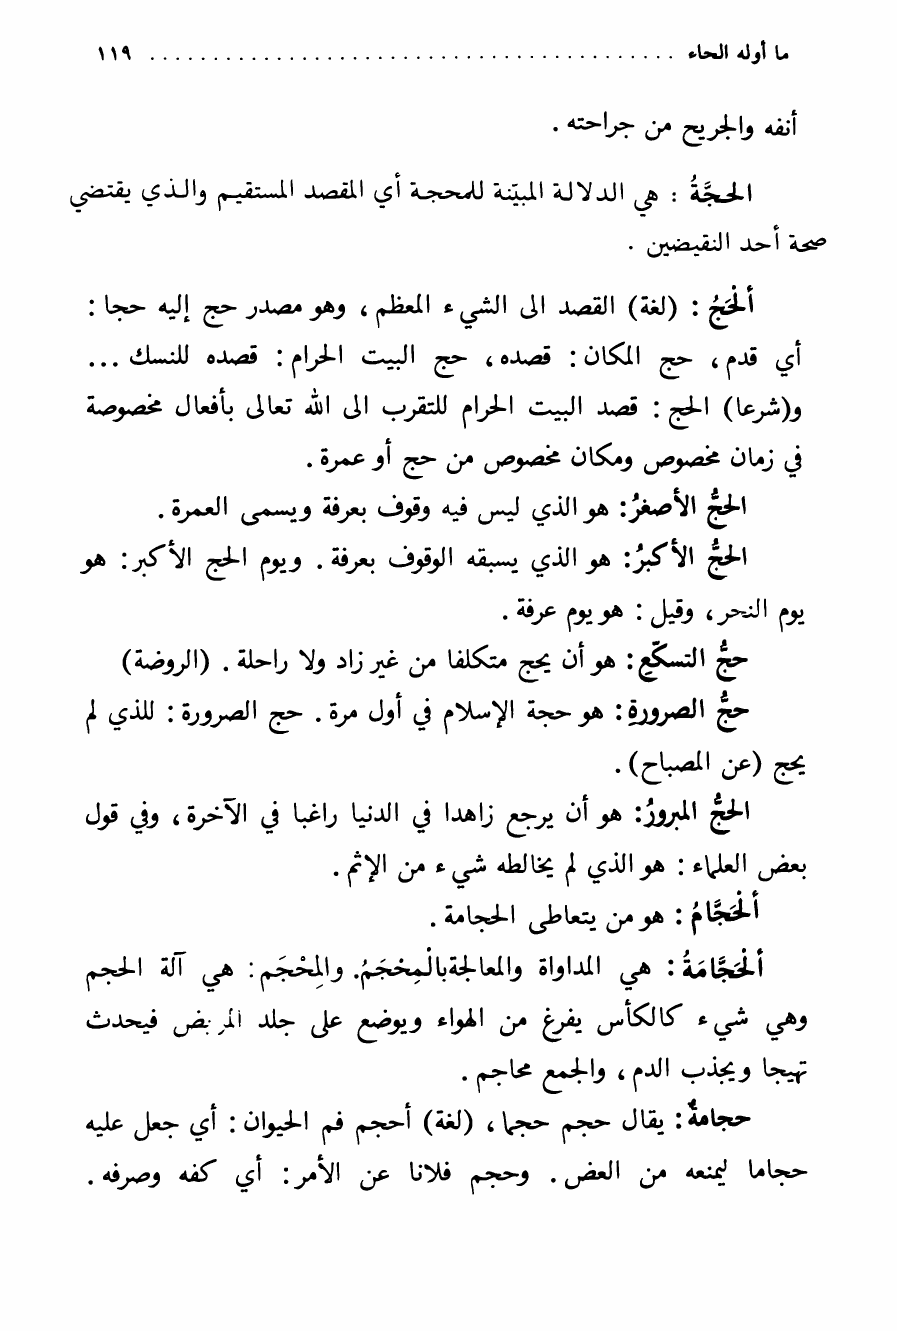 ما أوله الحاء ........................................ ١١٩
أنفه والجريح من جراحته .
الحجَّةُ : هي الدلالة المبيّنة للمحجة أي المقصد المستقيم والذي يقتضي
صحة أحد النقيضين .
ألْحَجُّ : (لغة) القصد الى الشيء المعظم ، وهو مصدر حج إليه حجا :
أي قدم ، حج المكان : قصده ، حج البيت الحرام : قصده للنسك ...
و(شرعا) الحج : قصد البيت الحرام للتقرب الى الله تعالى بأفعال مخصوصة
في زمان مخصوص ومكان مخصوص من حج أو عمرة .
الحجُّ الأصغرُ : هو الذي ليس فيه وقوف بعرفة ويسمى العمرة .
الحجُّ الأكبرُ : هو الذي يسبقه الوقوف بعرفة . ويوم الحج الأكبر : هو
يوم النحر ، وقيل : هو يوم عرفة .
حجُّ التسكّعِ : هو أن يحج متكلفا من غير زاد ولا راحلة . (الروضة)
حجُّ الصرورةِ : هو حجة الإسلام في أول مرة . حج الصرورة : للذي لم
يحج (عن المصباح) .
الحجُّ المبرورُ : هو أن يرجع زاهدا في الدنيا راغبا في الآخرة ، وفي قول
بعض العلماء : هو الذي لم يخالطه شيء من الإثم .
ألْحَجَّامُ : هو من يتعاطى الحجامة .
ألْحَجَّامَةُ : هي المداواة والمعالجة بالْمِحْجَمُ . والمِحْجَم : هي آلة الحجم
وهي شيء كالكأس يفرغ من الهواء ويوضع على جلد المريض فيحدث
تهيجا ويجذب الدم ، والجمع محاجم .
حجامةٌ : يقال حجم حجما ، (لغة) أحجم فم الحيوان : أي جعل عليه
حجاما ليمنعه من العض . وحجم فلانا عن الأمر : أي كفه وصرفه .